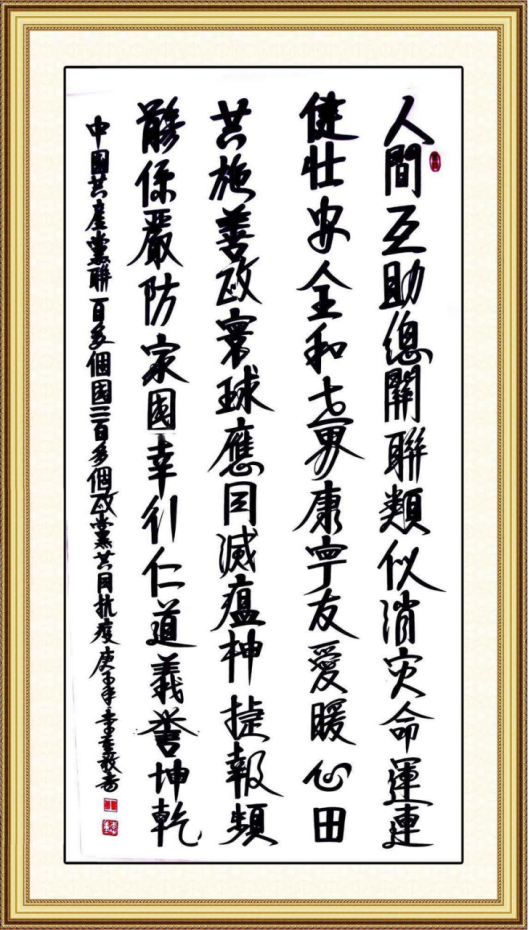 人間互助總關聯類似消灾命運連
健壯安全和世界康寧友愛暖心田
共施善政寰球應同滅瘟神捷報頻
保嚴防家國幸行仁道義譽坤乾
中國共產黨聯百多個國三百多個政黨共同抗疫庚子年書